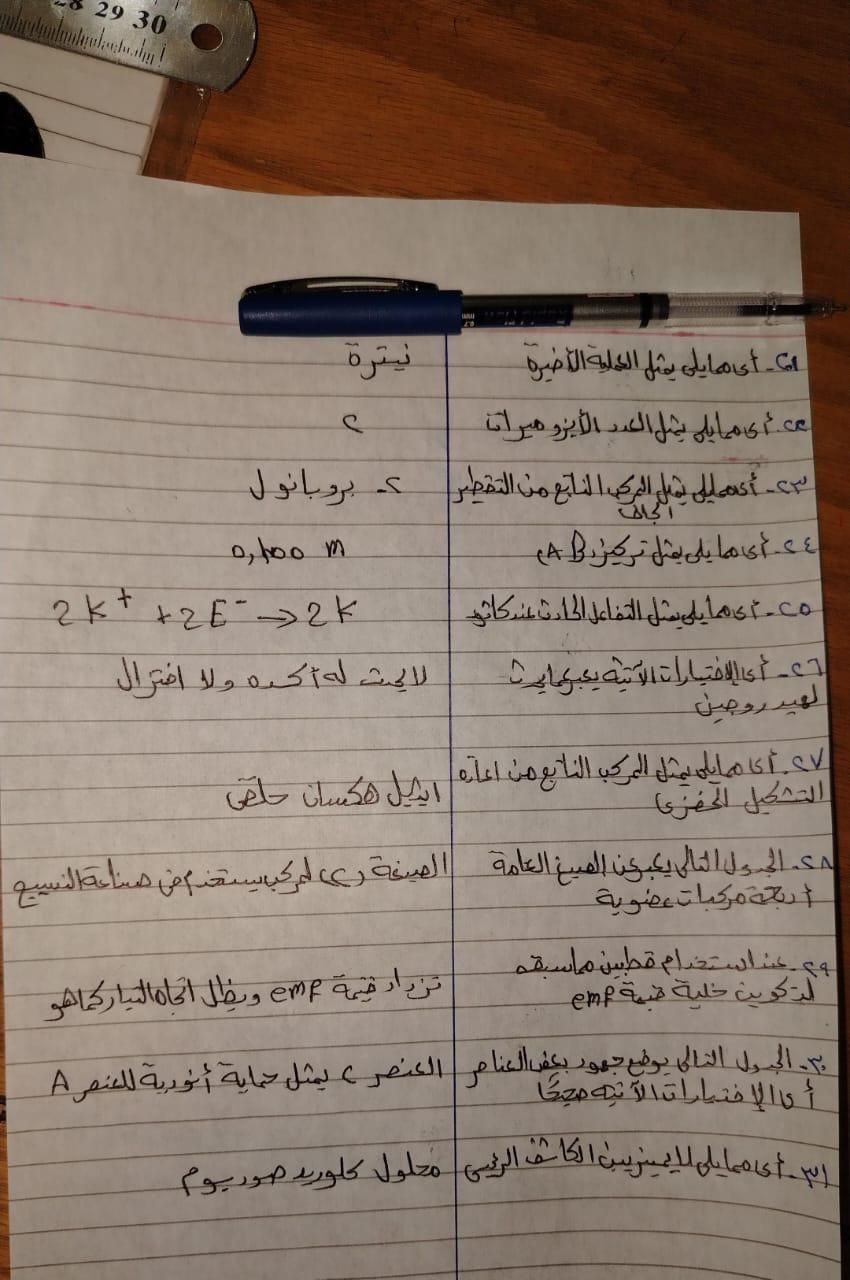 28 29 30
٢١- أى مما يلى يمثل العملية الأخيرة نيترة
٢٢- أى مما يلى يمثل العدد الأيزوميرات ٢
٢٣- أى مما يلى يمثل المركب الناتج من التقطير ٢- بروبانول
الجاف
٢٤- أى مما يلى يمثل تركيز (AB) 0,100 m
٢٥- أى مما يلى يمثل التفاعل الحادث عند كاثود 2K⁺ + 2E⁻ → 2K
٢٦- أى الاختيارات الآتية يعبر عما يحدث لا يحدث له أكسده ولا اختزال
لهيدروجين
٢٧- أى مما يلى يمثل المركب الناتج من اعاده
التشكيل المحفزى ايثيل هكسان حلقى
٢٨- الجدول التالى يعبر عن الصيغ العامة الصيغة (٢) لمركب يستخدم فى صناعة النسيج
أربعة مركبات عضوية
٢٩- عند استخدام قطبين مما سبق
لتكوين خلية قيمة emf تزداد قيمة emf ويظل اتجاه التيار كما هو
٣٠- الجدول التالى يوضح جهود بعض العناصر العنصر C يمثل حماية أنودية للعنصر A
أى الاختيارات الآتية صحيحًا
٣١- أى مما يلى لا يميز بين الكاشف الرئيسى محلول كلوريد صوديوم